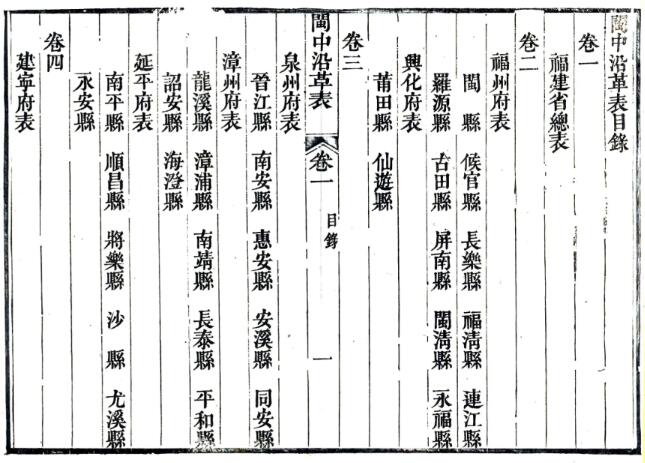 閩中沿革表目錄
卷一
福建省總表
卷二
福州府表
閩縣 候官縣 長樂縣 福清縣 連江縣
羅源縣 古田縣 屏南縣 閩清縣 永福縣
興化府表
莆田縣 仙遊縣
卷三
閩中沿革表 卷一 目錄 一
泉州府表
晉江縣 南安縣 惠安縣 安溪縣 同安縣
漳州府表
龍溪縣 漳浦縣 南靖縣 長泰縣 平和縣
詔安縣 海澄縣
延平府表
南平縣 順昌縣 將樂縣 沙縣 尤溪縣
永安縣
卷四
建寧府表